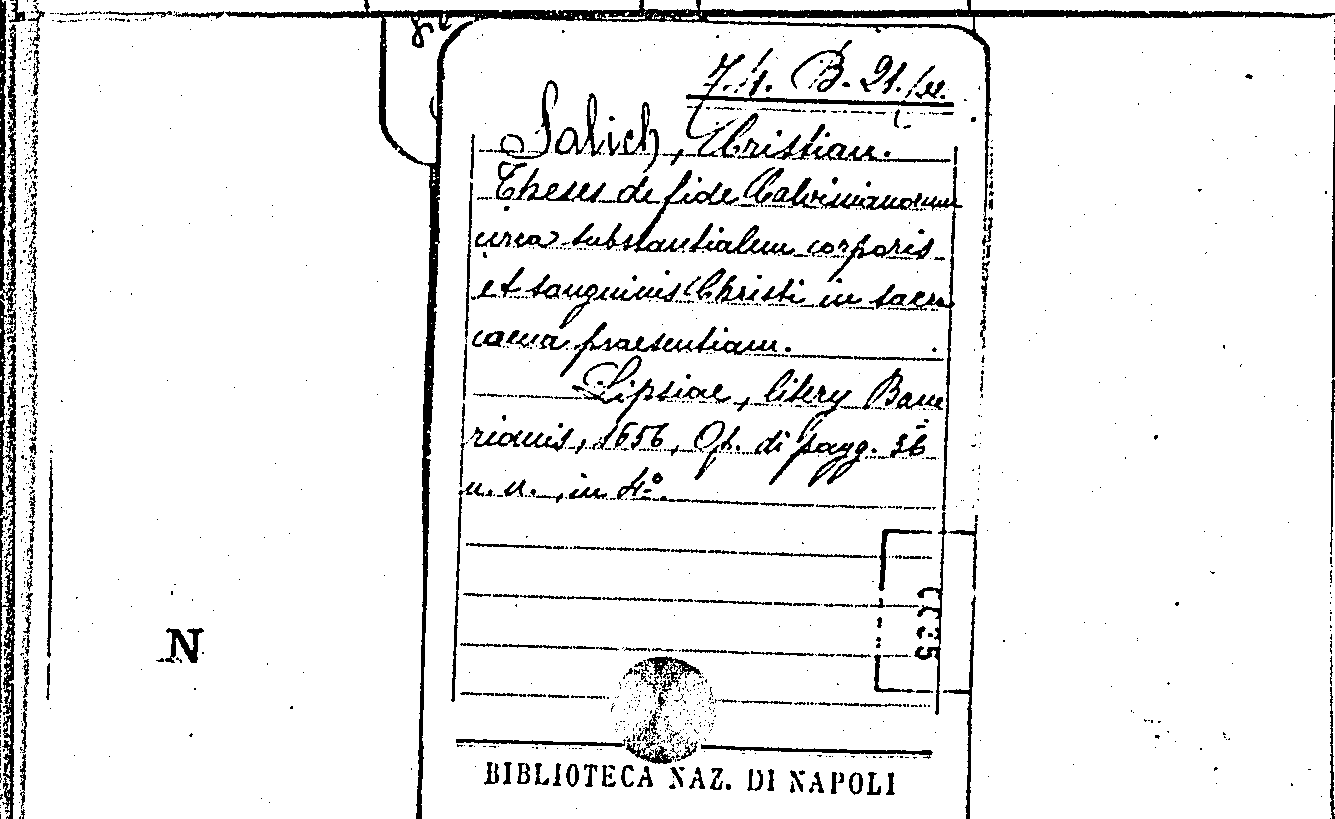 74. B. 21.
Salich, Cristian.
Theses de fide Calvinianorum
circa substantialem corporis
et sanguinis Christi in sacra
caena praesentiam.
Lipsiae, litery Baue
rianis, 1656, Op. di pagg. 36
n. n., in 4.º
N
BIBLIOTECA NAZ. DI NAPOLI